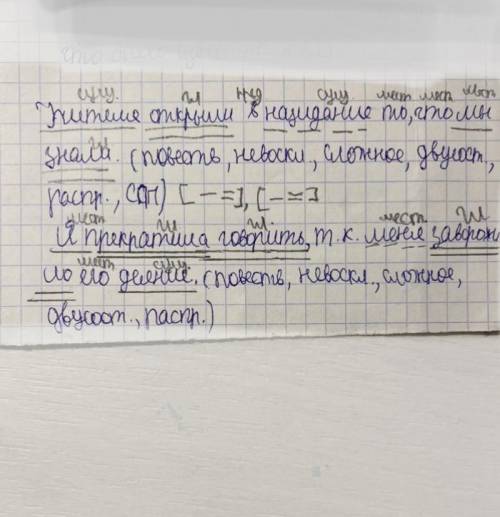 сущ. гл пред сущ мест мест мест
Жители открыли в назидание то, что мы
гл
знали. (повеств, невоскл., сложное, двусост.,
распр., СПП) [ — = ], [ — = ]
мест гл гл. мест гл
Я прекратила говорить, т. к. меня заворож
мест сущ.
ило его деяние. (повеств, невоскл., сложное,
двусост., распр.)